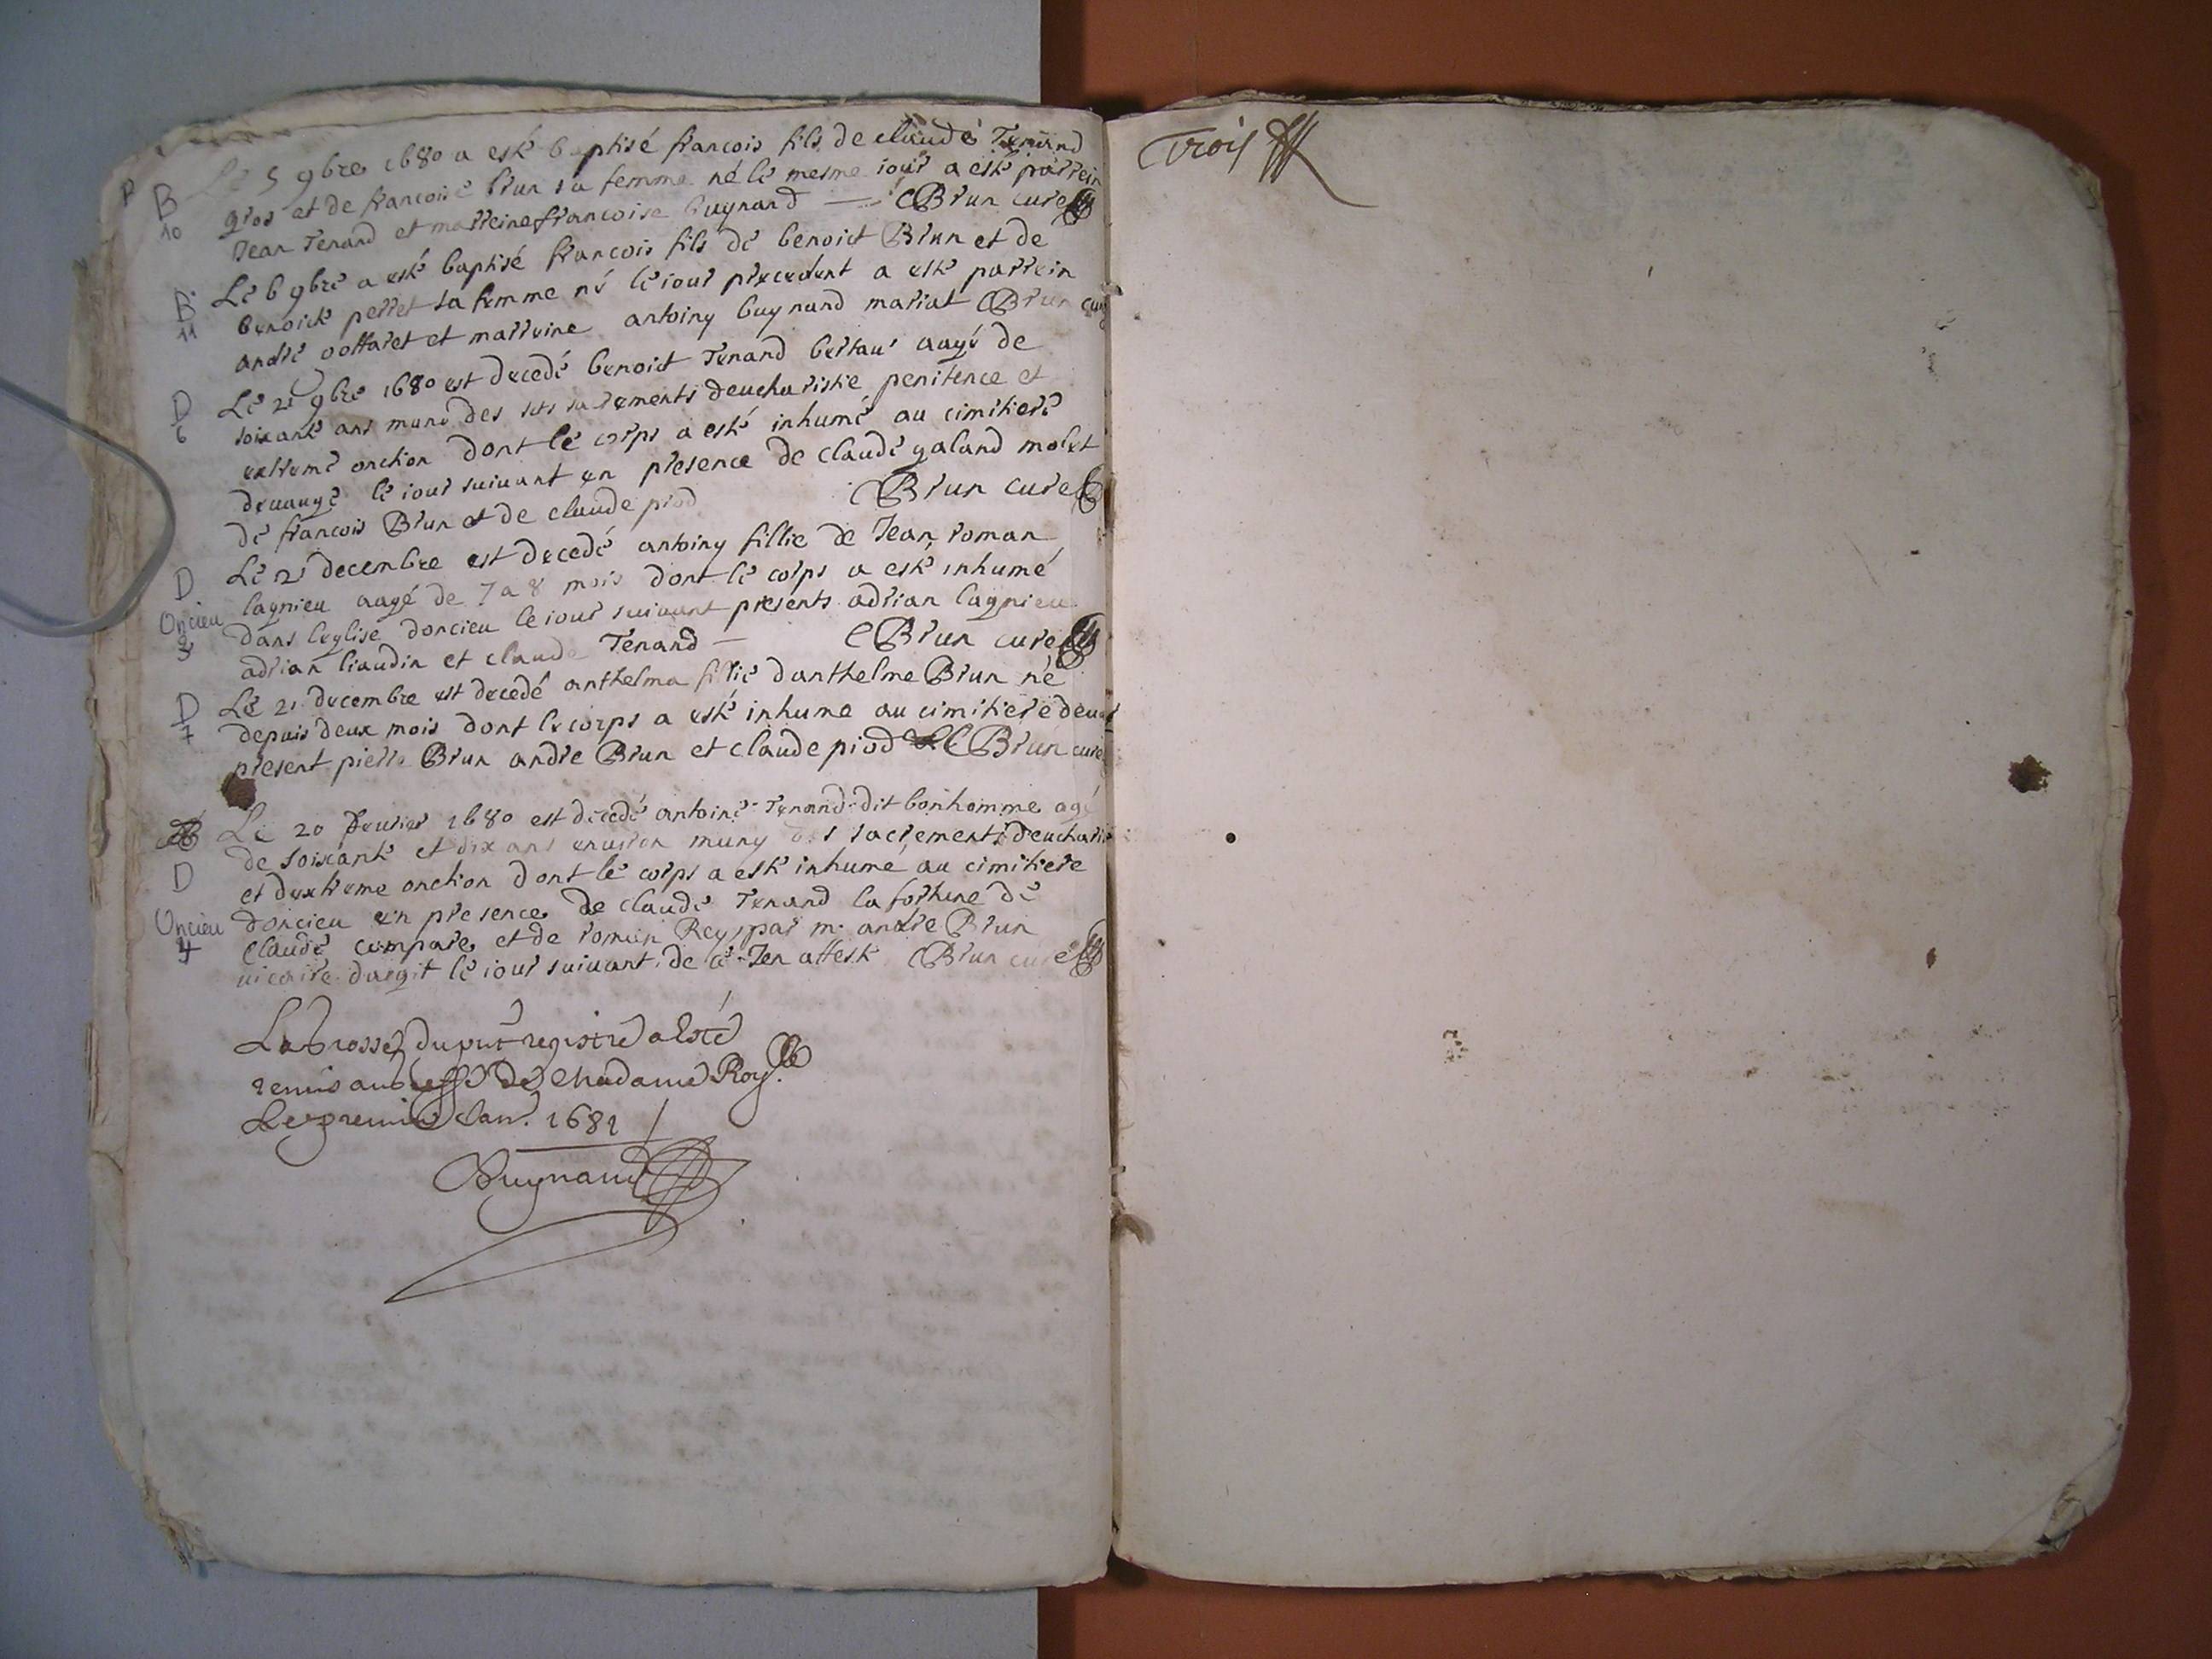 Le 5 9bre 1680 a esté baptisé francois fils de claude Tenand
P B gros et de francoise brun sa femme né le mesme iour a esté parrein
10 Jean Tenand et marreine francoise buynand — CBrun curé
Le 6 9bre a esté baptisé francois fils de benoict Brun et de
B benoicte perret sa femme né le iour precedent a esté parrein
11 andré et marreine antoiny buynand mariat CBrun curé
Le 21 9bre 1680 est decedé benoict Tenand bertau aagé de
D soixante ans muni des sts sacrements deucharistie penitence et
6 extreme onction dont le corps a esté inhumé au cimitiere
le iour suivant en presence de claude galand molet
de francois Brun et de claude piod CBrun curé
Le 21 decembre est decedé antoiny fillie de Jean roman
D lagnieu aagé de 7 a 8 mois dont le corps a esté inhumé
Oncieu dans leglise doncieu le iour suivant presents adrian lagnieu
3 adrian liaudin et claude Tenand — CBrun curé
D Le 21 decembre est decedé anthelma fillie danthelme Brun né
7 depuis deux mois dont le corps a esté inhume au cimitiere
present pierre Brun andre Brun et claude piod CBrun curé
Le 20 feurier 1680 est decedé antoine Tenand dit bonhomme agé
de soixante et dix ans enuiron muny des sacrements deucharistie
D et dextreme onction dont le corps a esté inhumé au cimitiere
Oncieu doncieu en presence de claude Tenand la fortune de
4 Claude compare et de romain Rey par mr andre Brun
vicaire dargit le iour suivant de ce Jen atteste CBrun curé
La grosse du pnt registre a esté
remis au greffe de Madame Roy.lle
Le premier Janr. 1681
Buynand
Trois